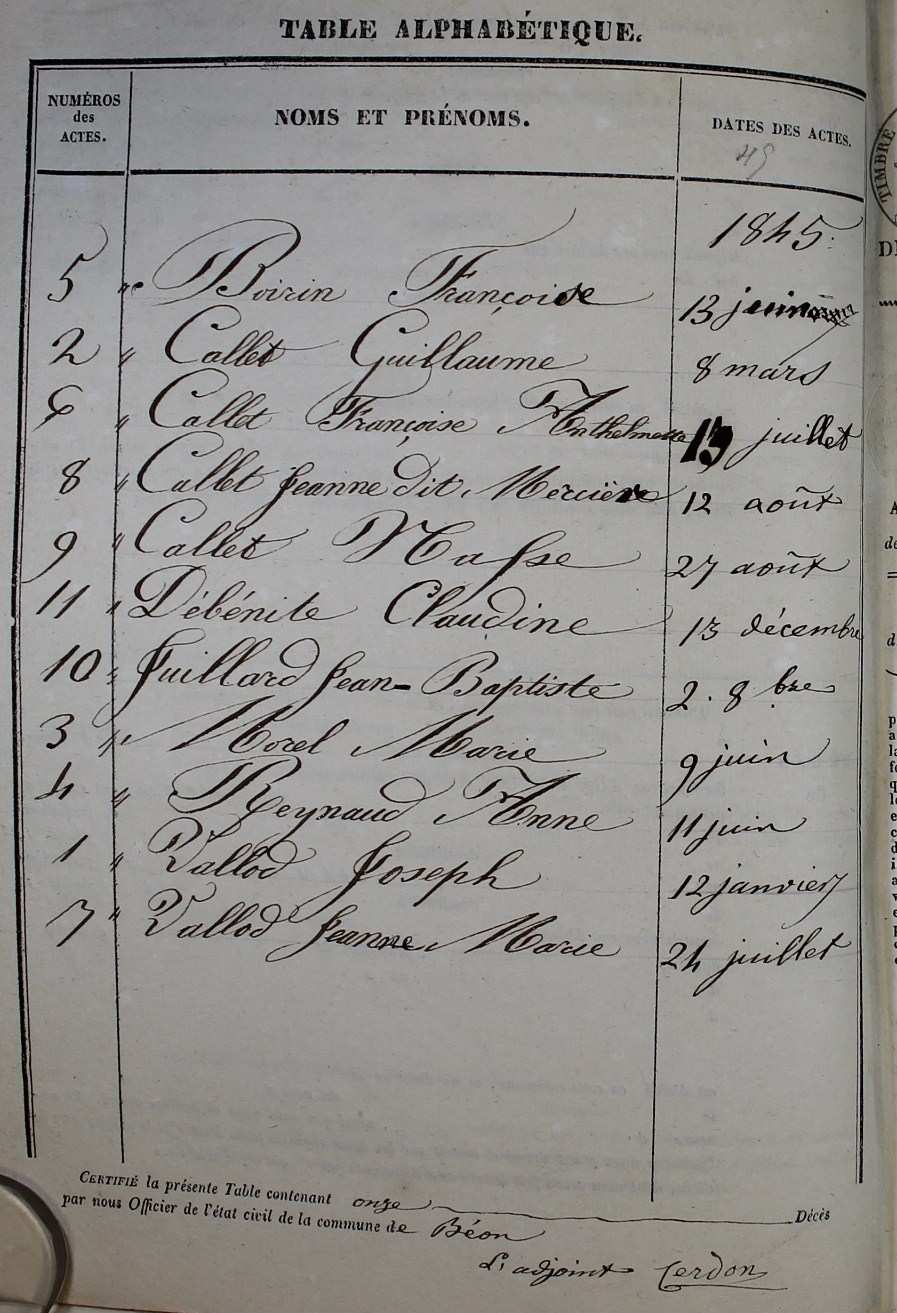 TABLE ALPHABÉTIQUE.
NUMÉROS des ACTES. NOMS ET PRÉNOMS. DATES DES ACTES.
45
1845.
5 " Boirin Françoise 13 juin
2 " Callet Guillaume 8 mars
6 " Callet Françoise Anthelmette 13 juillet
8 " Callet Jeanne dit Mercière 12 août
9 " Callet 27 août
11 " Débénite Claudine 13 décembre
10 " Juillard Jean-Baptiste 2. 8bre
3 " Morel Marie 9 juin
4 " Reynaud Anne 11 juin
1 " Vallod Joseph 12 janvier
7 " Vallod Jeanne Marie 24 juillet
CERTIFIÉ la présente Table contenant onze Décès
par nous Officier de l'état civil de la commune de Béon
L'adjoint Cerdon
TIMBRE